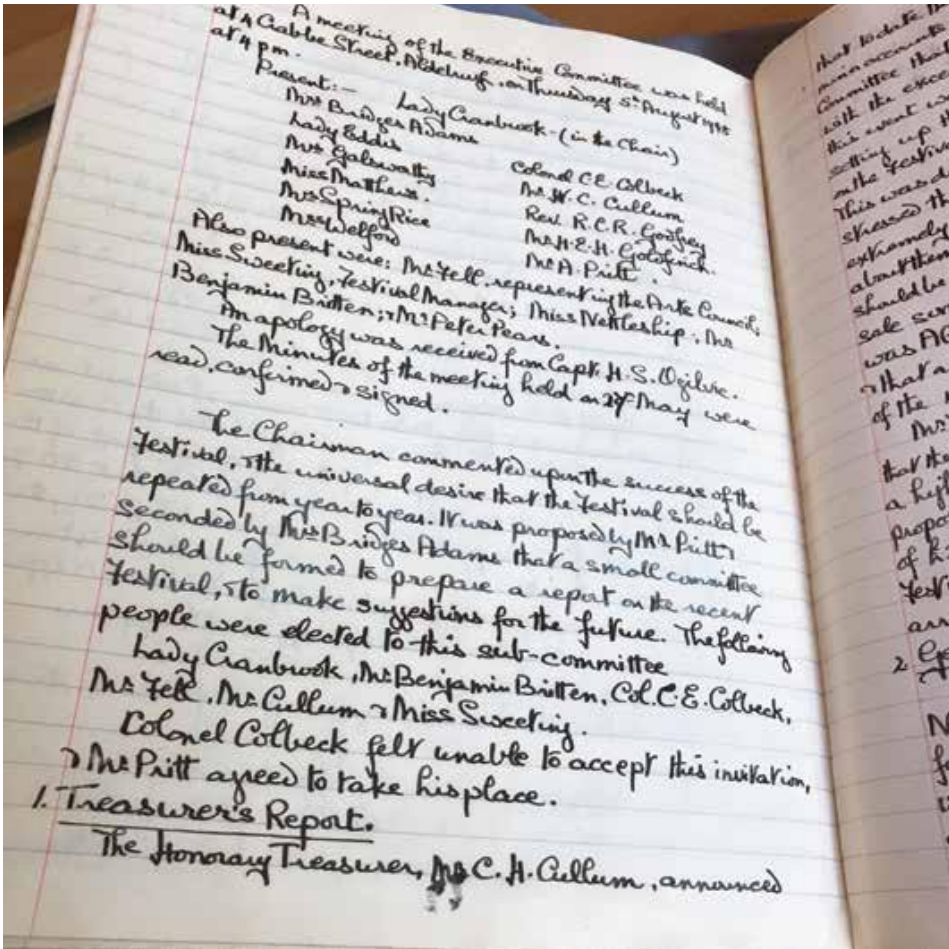 A meeting of the Executive Committee was held
at 4 Crabbe Street, Aldeburgh, on Thursday 5th August 1948
at 4 pm.
Present:- Lady Cranbrook - (in the Chair)
Mrs Bridges Adams Colonel C.E. Colbeck
Lady Eddis Mr W.C. Cullum
Mrs Galsworthy Rev. R.C.R. Godfrey
Miss Matthews. Mr H.E.H. Goldfinch.
Mrs Spring Rice Mr A. Pritt.
Mrs Welford
Also present were: Mr Fell, representing the Arts Council;
Miss Sweeting, Festival Manager; Miss Nettleship; Mr
Benjamin Britten; & Mr Peter Pears.
An apology was received from Capt. H.S. Ogilvie.
The Minutes of the meeting held on 27th May were
read, confirmed & signed.
The Chairman commented upon the success of the
Festival, & the universal desire that the Festival should be
repeated from year to year. It was proposed by Mr Pritt &
seconded by Mrs Bridges Adams that a small committee
should be formed to prepare a report on the recent
Festival, & to make suggestions for the future. The following
people were elected to this sub-committee
Lady Cranbrook, Mr Benjamin Britten, Col. C.E. Colbeck,
Mr Fell, Mr Cullum & Miss Sweeting.
Colonel Colbeck felt unable to accept this invitation,
& Mr Pritt agreed to take his place.
1. Treasurer's Report.
The Honorary Treasurer, Mr C.H. Cullum, announced
that to date th
main accounts
Committee that
with the exce
this event w
setting up th
on the Festiv
This was d
stressed th
extremely
about them
should be
sale
was AG
& that a
of the
Mr
that the
a high
propo
of hi
Festi
arr
2.